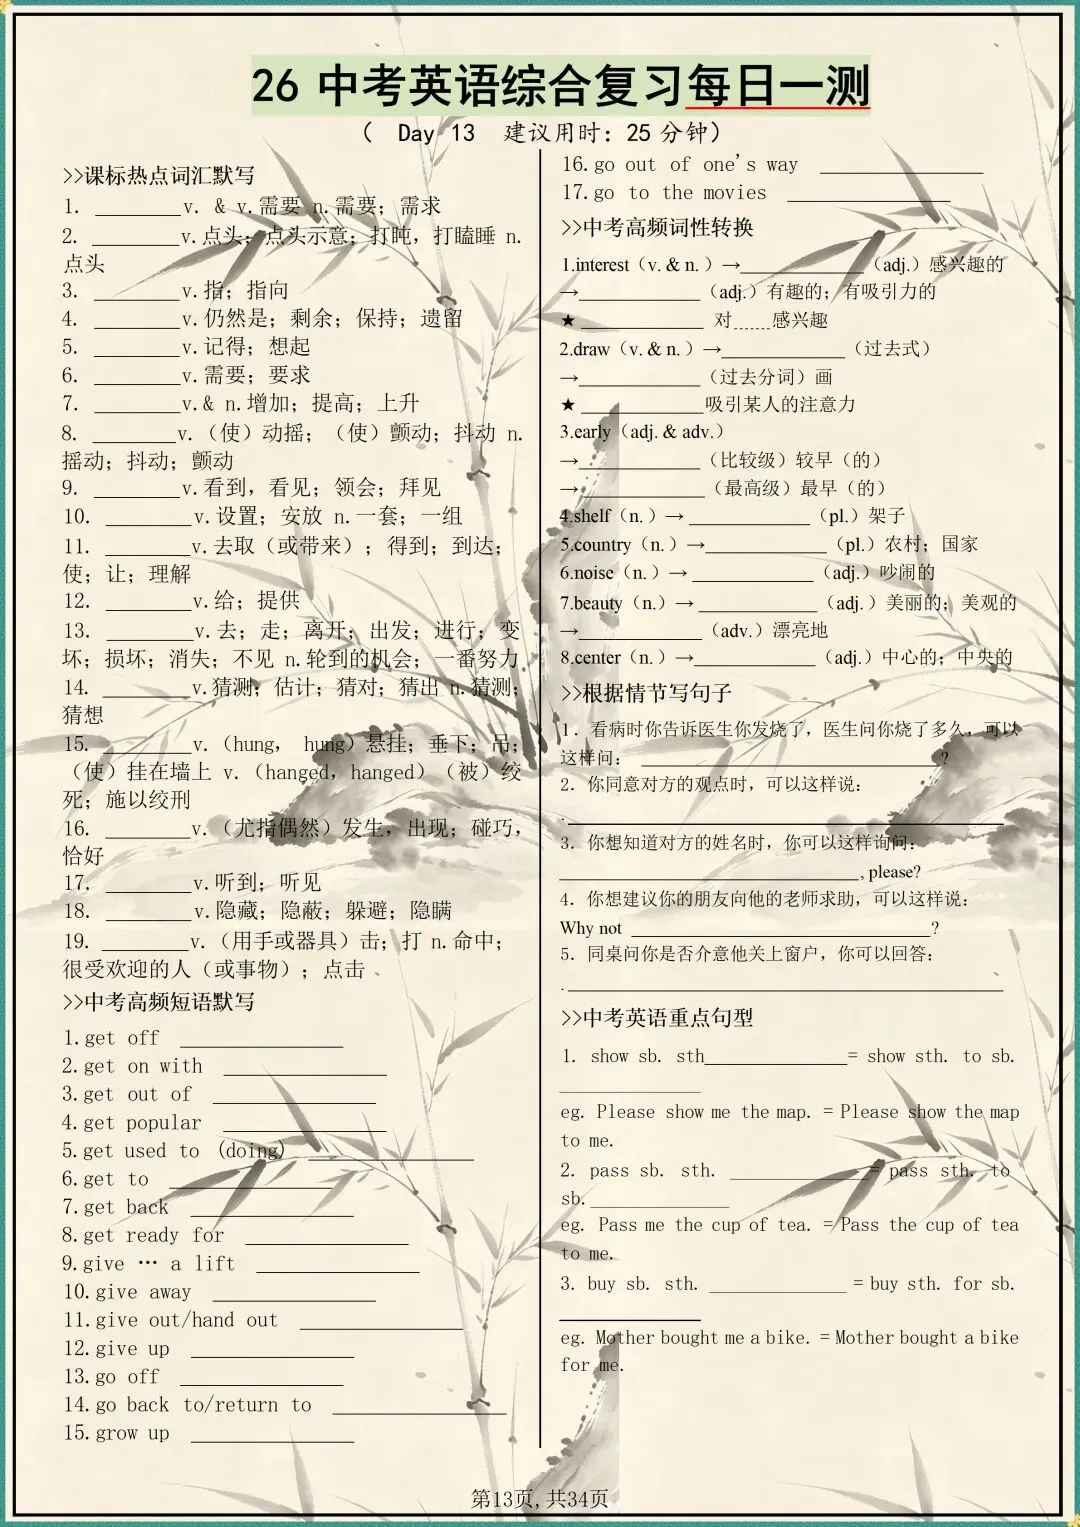 26 中考英语综合复习每日一测
( Day 13 建议用时：25 分钟)
>>课标热点词汇默写
1. ________v. & v.需要 n.需要；需求
2. ________v.点头；点头示意；打盹，打瞌睡 n.
点头
3. ________v.指；指向
4. ________v.仍然是；剩余；保持；遗留
5. ________v.记得；想起
6. ________v.需要；要求
7. ________v.& n.增加；提高；上升
8. ________v.（使）动摇；（使）颤动；抖动 n.
摇动；抖动；颤动
9. ________v.看到，看见；领会；拜见
10. ________v.设置；安放 n.一套；一组
11. ________v.去取（或带来）；得到；到达；
使；让；理解
12. ________v.给；提供
13. ________v.去；走；离开；出发；进行；变
坏；损坏；消失；不见 n.轮到的机会；一番努力
14. ________v.猜测；估计；猜对；猜出 n.猜测；
猜想
15. ________v.（hung， hung）悬挂；垂下；吊；
（使）挂在墙上 v.（hanged，hanged）（被）绞
死；施以绞刑
16. ________v.（尤指偶然）发生，出现；碰巧，
恰好
17. ________v.听到；听见
18. ________v.隐藏；隐蔽；躲避；隐瞒
19. ________v.（用手或器具）击；打 n.命中；
很受欢迎的人（或事物）；点击
>>中考高频短语默写
1.get off ________
2.get on with ________
3.get out of ________
4.get popular ________
5.get used to (doing) ________
6.get to ________
7.get back ________
8.get ready for ________
9.give … a lift ________
10.give away ________
11.give out/hand out ________
12.give up ________
13.go off ________
14.go back to/return to ________
15.grow up ________
16.go out of one's way ________
17.go to the movies ________
>>中考高频词性转换
1.interest（v. & n. ）→________（adj.）感兴趣的
→________（adj.）有趣的；有吸引力的
★ ________ 对......感兴趣
2.draw（v. & n. ）→________（过去式）
→________（过去分词）画
★ ________吸引某人的注意力
3.early（adj. & adv.）
→________（比较级）较早（的）
→________（最高级）最早（的）
4.shelf（n. ）→ ________（pl.）架子
5.country（n. ）→________（pl.）农村；国家
6.noise（n. ）→ ________（adj.）吵闹的
7.beauty（n.）→ ________（adj. ）美丽的；美观的
→________（adv.）漂亮地
8.center（n. ）→________（adj.）中心的；中央的
>>根据情节写句子
1．看病时你告诉医生你发烧了，医生问你烧了多久，可以
这样问： ________?
2．你同意对方的观点时，可以这样说：
.________
3．你想知道对方的姓名时，你可以这样询问：
________, please?
4．你想建议你的朋友向他的老师求助，可以这样说：
Why not ________?
5．同桌问你是否介意他关上窗户，你可以回答：
.________
>>中考英语重点句型
1. show sb. sth________= show sth. to sb.
________
eg. Please show me the map. = Please show the map
to me.
2. pass sb. sth. ________= pass sth. to
sb.________
eg. Pass me the cup of tea. = Pass the cup of tea
to me.
3. buy sb. sth. ________ = buy sth. for sb.
________
eg. Mother bought me a bike. = Mother bought a bike
for me.
第13页,共34页